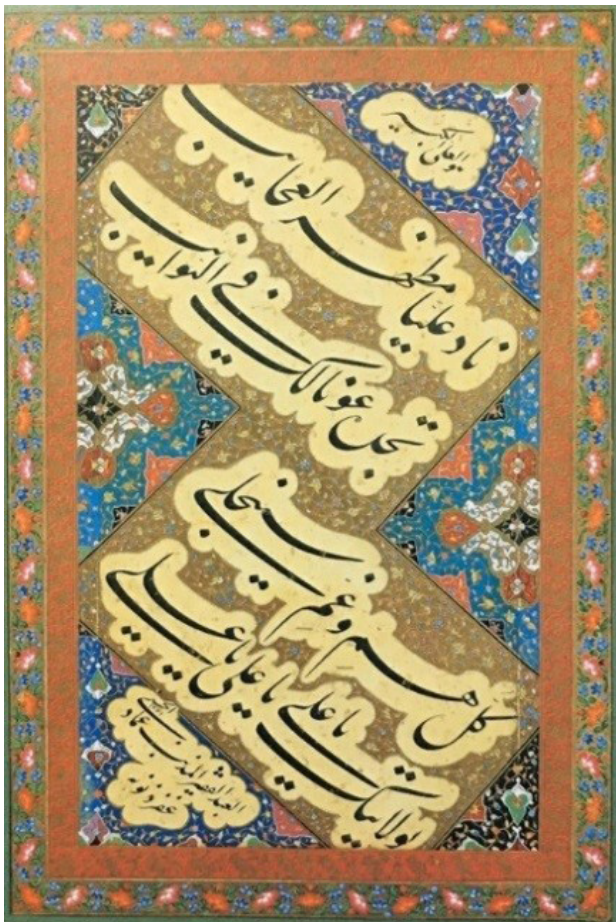 هو العلی الکبیر
ناد علیا مظهر العجایب
تجده عونا لک فی النوایب
کل هم و غم سینجلی
بولایتک یا علی یا علی یا علی
العبد الفقیر المذنب عماد
غفر ذنوبه